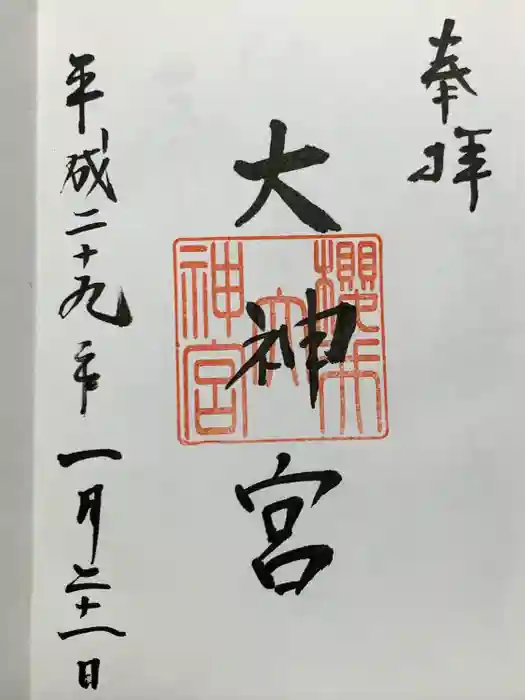 奉拝
大神宮
櫻井
大
神宮
平成二十九年一月二十一日